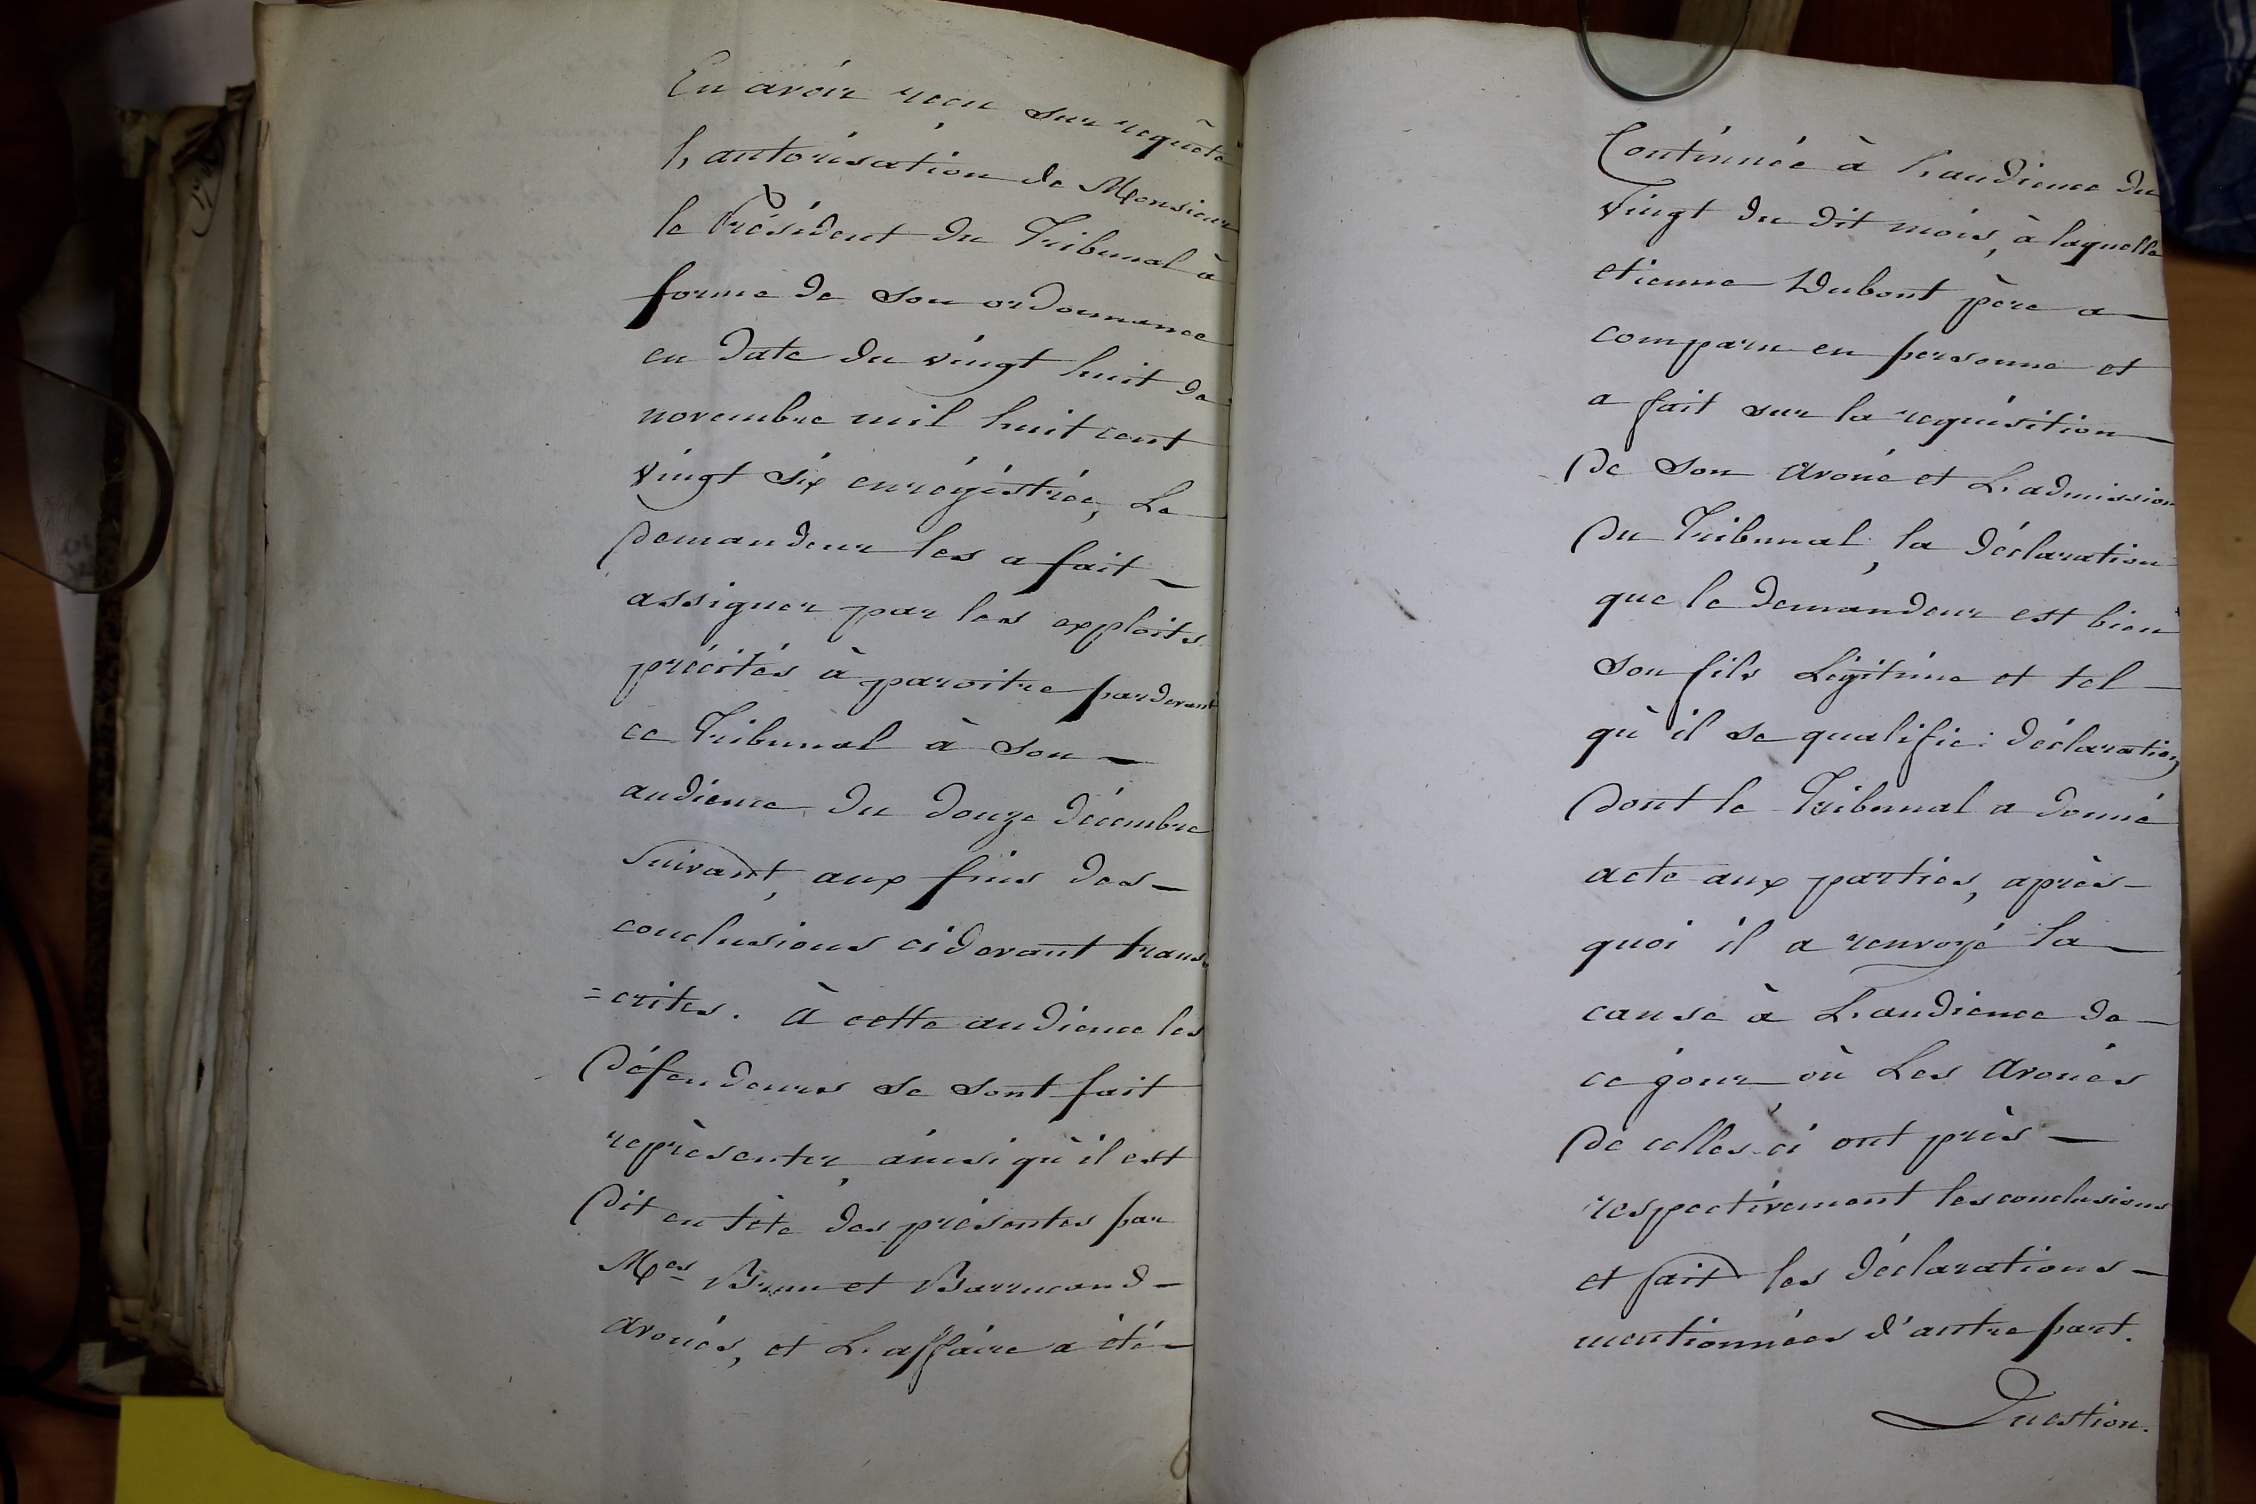 En avoir reçu sur requête
l'autorisation de Monsieur
le Président du Tribunal à
forme de son ordonnance
en date du vingt huit de
novembre mil huit cent
vingt six enrégistrée, Le
Demandeur les a fait —
assigner par les exploits
précités à paroitre pardevant
ce Tribunal à son —
audience du douze décembre
suivant, aux fins des —
conclusions cidevant trans
=crites. À cette audience les
Défendeurs se sont fait
représenter, ainsi qu'il est
Dit en tête des présentes par
Mes Brun et Barrucand —
avoués, et L'affaire a été —
Continuée à l'audience du
vingt du dit mois, à laquelle
etienne Dubont père a —
comparu en personne et
a fait sur la requisition —
De son avoué et L'admission
Du Tribunal, la déclaration
que le demandeur est bien
son fils Légitime et tel —
qu'il se qualifie: déclaration
Dont le Tribunal a donné
acte aux parties, après —
quoi il a renvoyé la —
cause à L'audience de —
ce jour, où Les avoués
De celles-ci ont pris —
respectivement les conclusions
et fait les déclarations —
mentionnées d'autre part.
Question.